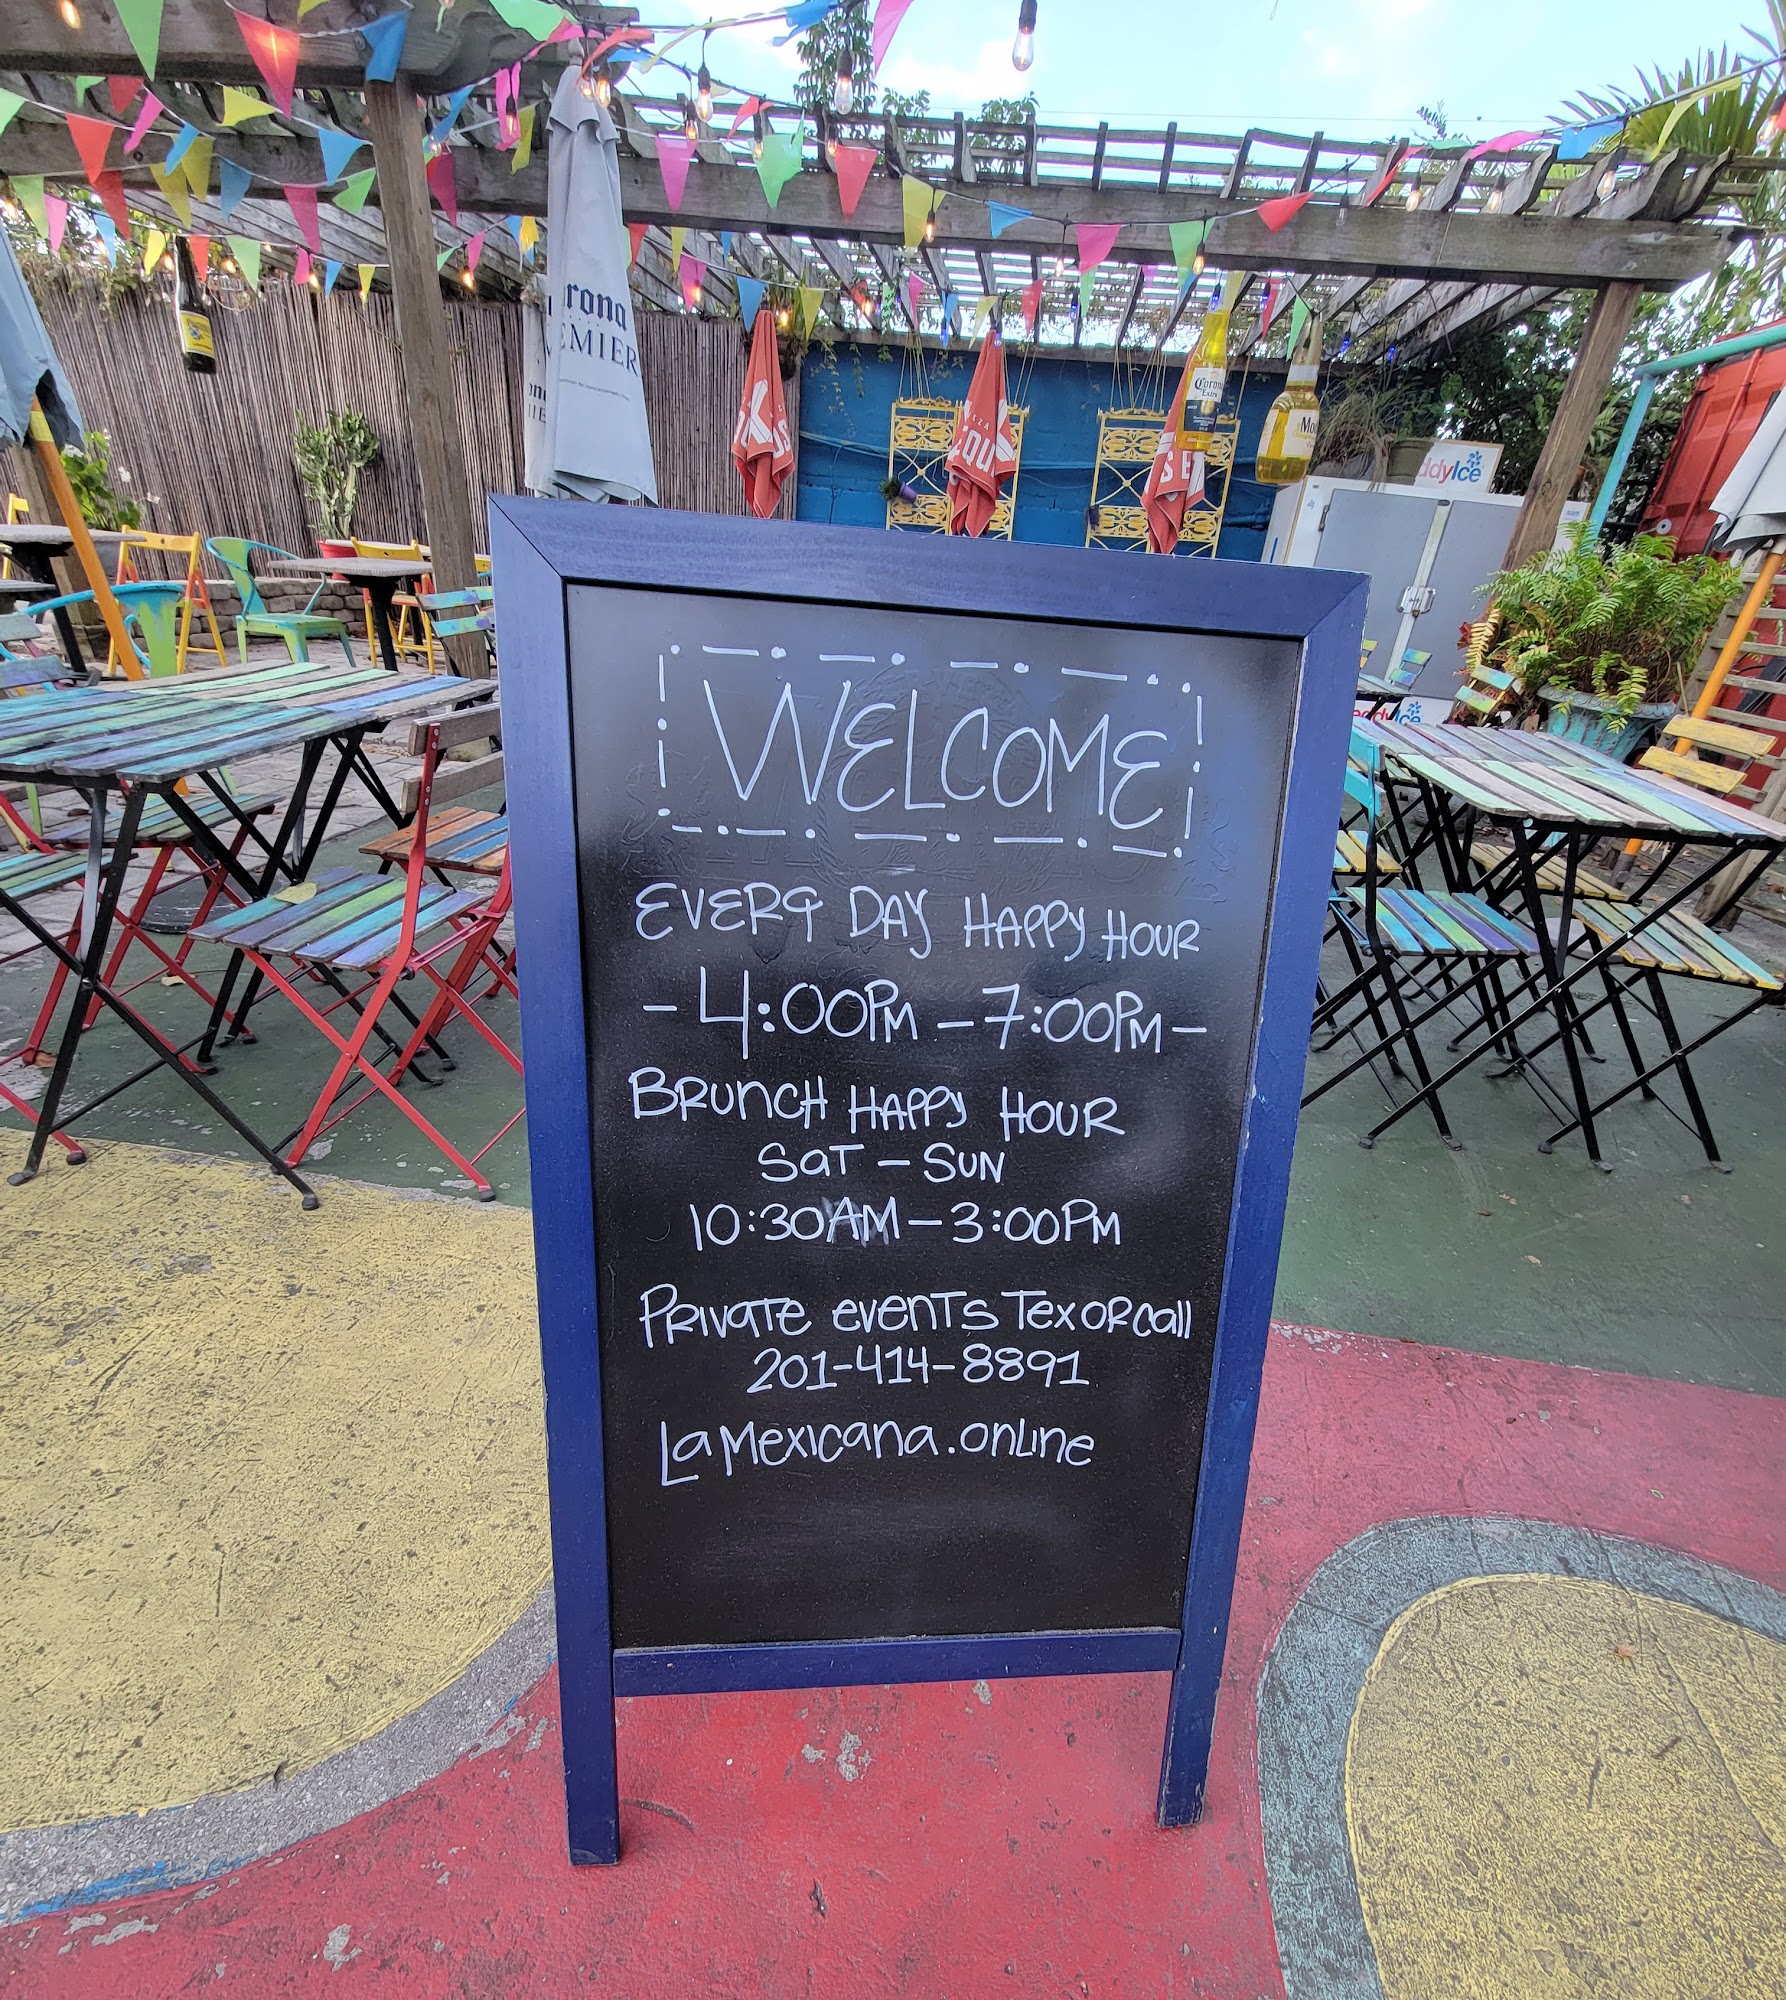 rona
EMIER
Corona
Extra
Mo
ddyIce
WELCOME
EVERY DAY HAPPY HOUR
- 4:00PM - 7:00PM -
BRUNCH HAPPY HOUR
SAT - SUN
10:30AM - 3:00PM
PRIVATE EVENTS TEX OR CALL
201-414-8891
LaMexicana.online